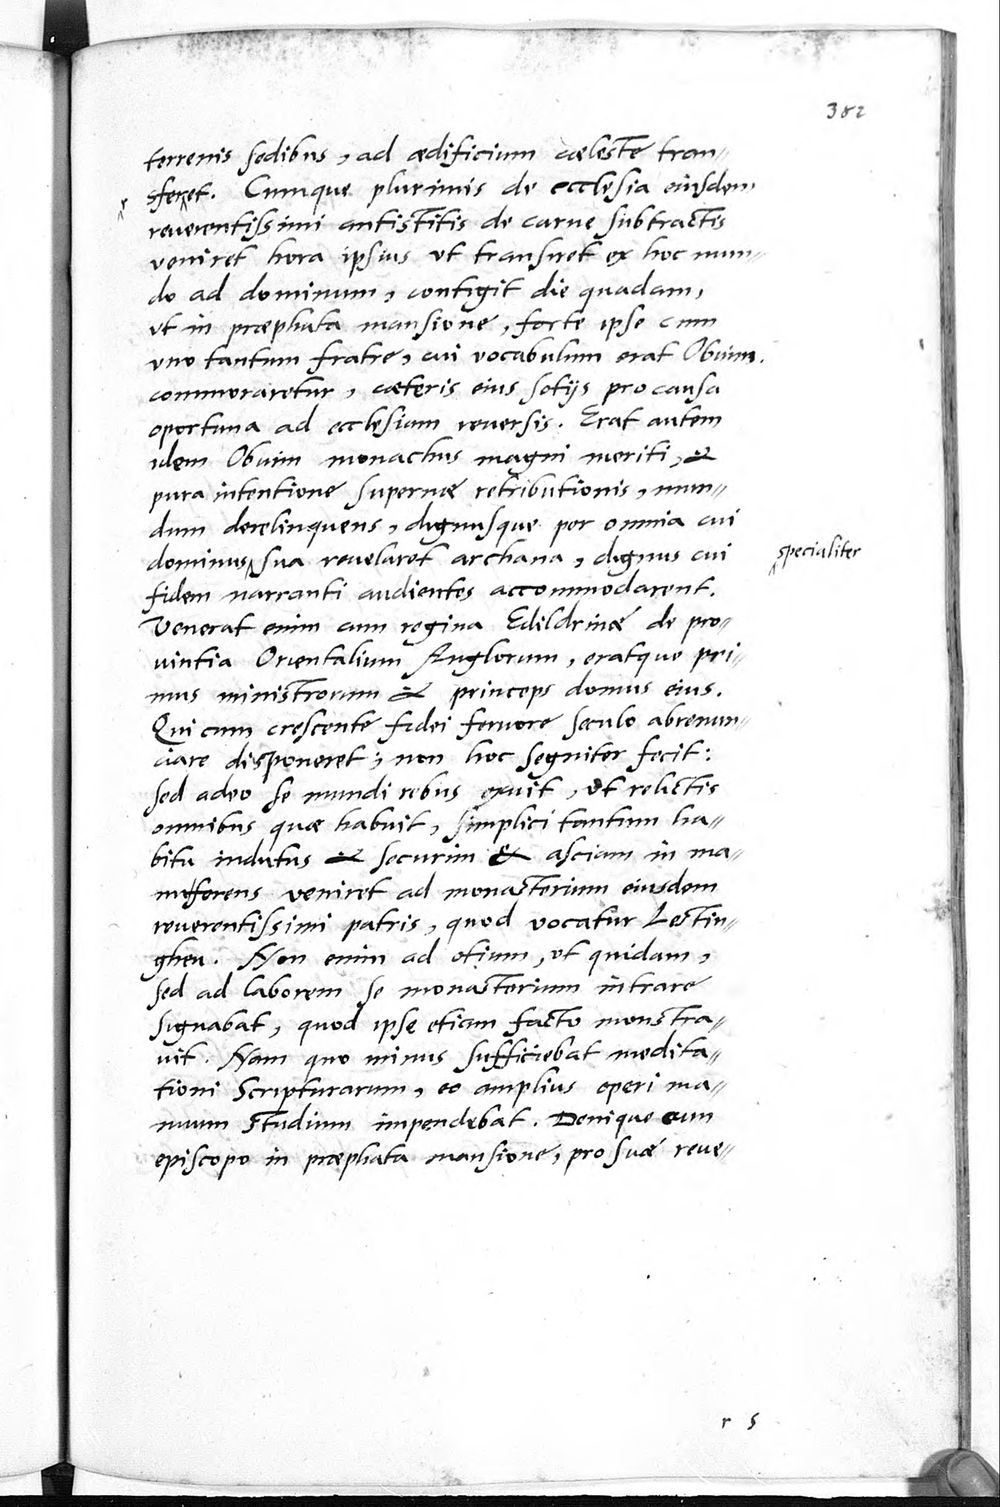 382
terrenis sedibus, ad ædificium cæleste tran=
sferet. Cumque plurimis de ecclesia eiusdem
r
reuerentissimi antistitis de carne subtractis
veniret hora ipsius vt transiret ex hoc mun=
do ad dominum, contigit die quadam,
vt in præphata mansione, forte ipse cum
vno tantum fratre, cui vocabulum erat Obuim.
commoraretur, cæteris eius sotijs pro causa
oportuna ad ecclesiam reuersis. Erat autem
idem Obuim monachus magni meriti, &
pura intentione supernæ retributionis, mun=
dum derelinquens, dignusque per omnia cui
dominus sua reuelaret archana, dignus cui
specialiter
fidem narranti audientes accommodarent.
Venerat enim cum regina Edildrinæ de pro=
uintia Orientalium Anglorum, eratque pri=
mus ministrorum & princeps domus eius.
Qui cum crescente fidei feruore seculo abrenun=
ciare disponeret; non hoc segniter fecit:
sed adeo se mundi rebus exuit, vt relictis
omnibus quæ habuit, simplici tantum ha=
bitu indutus & securim & asciam in ma=
nu ferens veniret ad monasterium eiusdem
reuerentissimi patris, quod vocatur Lestin=
gheu. Non enim ad otium, vt quidam,
sed ad laborem se monasterium intrare
signabat, quod ipse etiam facto monstra=
uit. Nam quo minus sufficiebat medita=
tioni Scripturarum, eo amplius operi ma=
nuum studium impendebat. Denique cum
episcopo in præphata mansione, pro suæ reue=
r 5